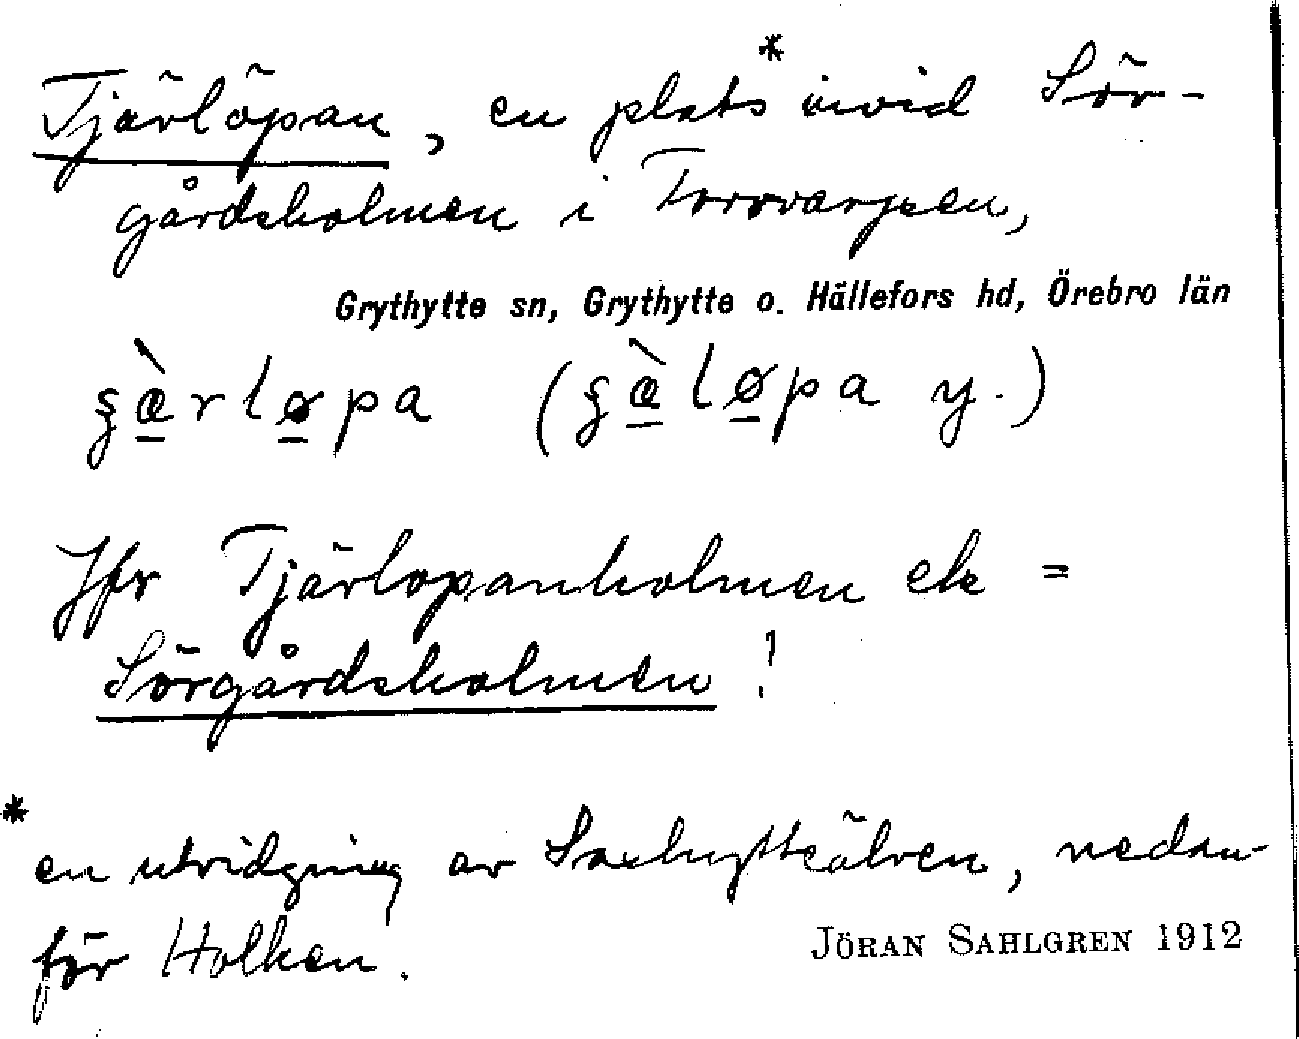 Tjärlöpan, en plats* invid Sör-
gårdsholmen i Torrvarpen,
Grythytte sn, Grythytte o. Hällefors hd, Örebro län
Jfr Tjärlopanholmen ek =
Sörgårdsholmen!
* en utvidgning av Saxhytteälven, nedan-
för Holken.
JÖRAN SAHLGREN 1912